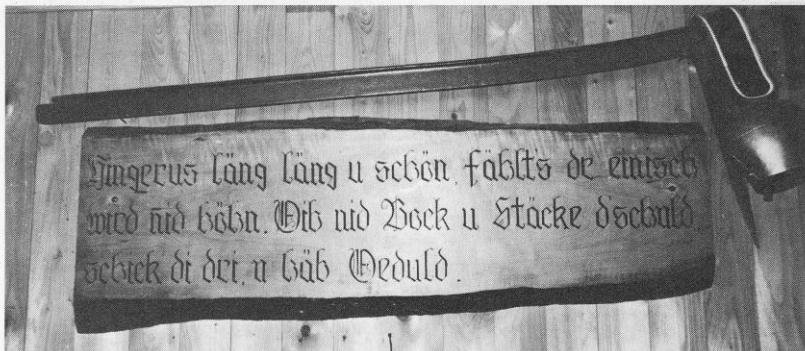 Hingerus läng läng u schön, fählt's de einisch
wird nid höhn. Gib nid Bock u Stäcke d schuld,
schick di dri, u häb Geduld.